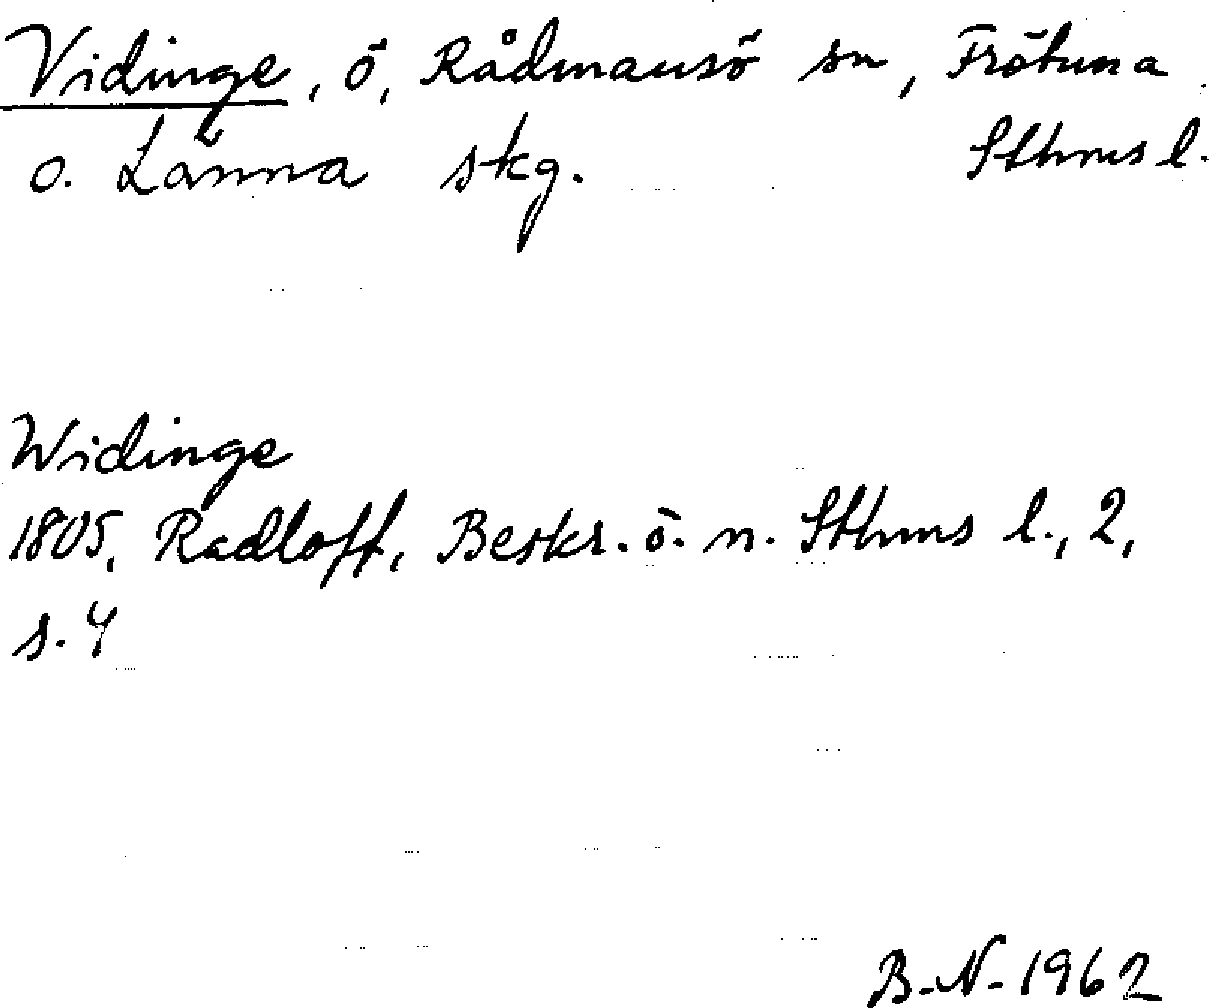 Vidinge, ö, Rådmansö sn, Frötuna
o. Länna skg. Sthms l.
Widinge
1805, Radloff, Beskr. ö. n. Sthms l., 2,
s. 4
B-N-1962